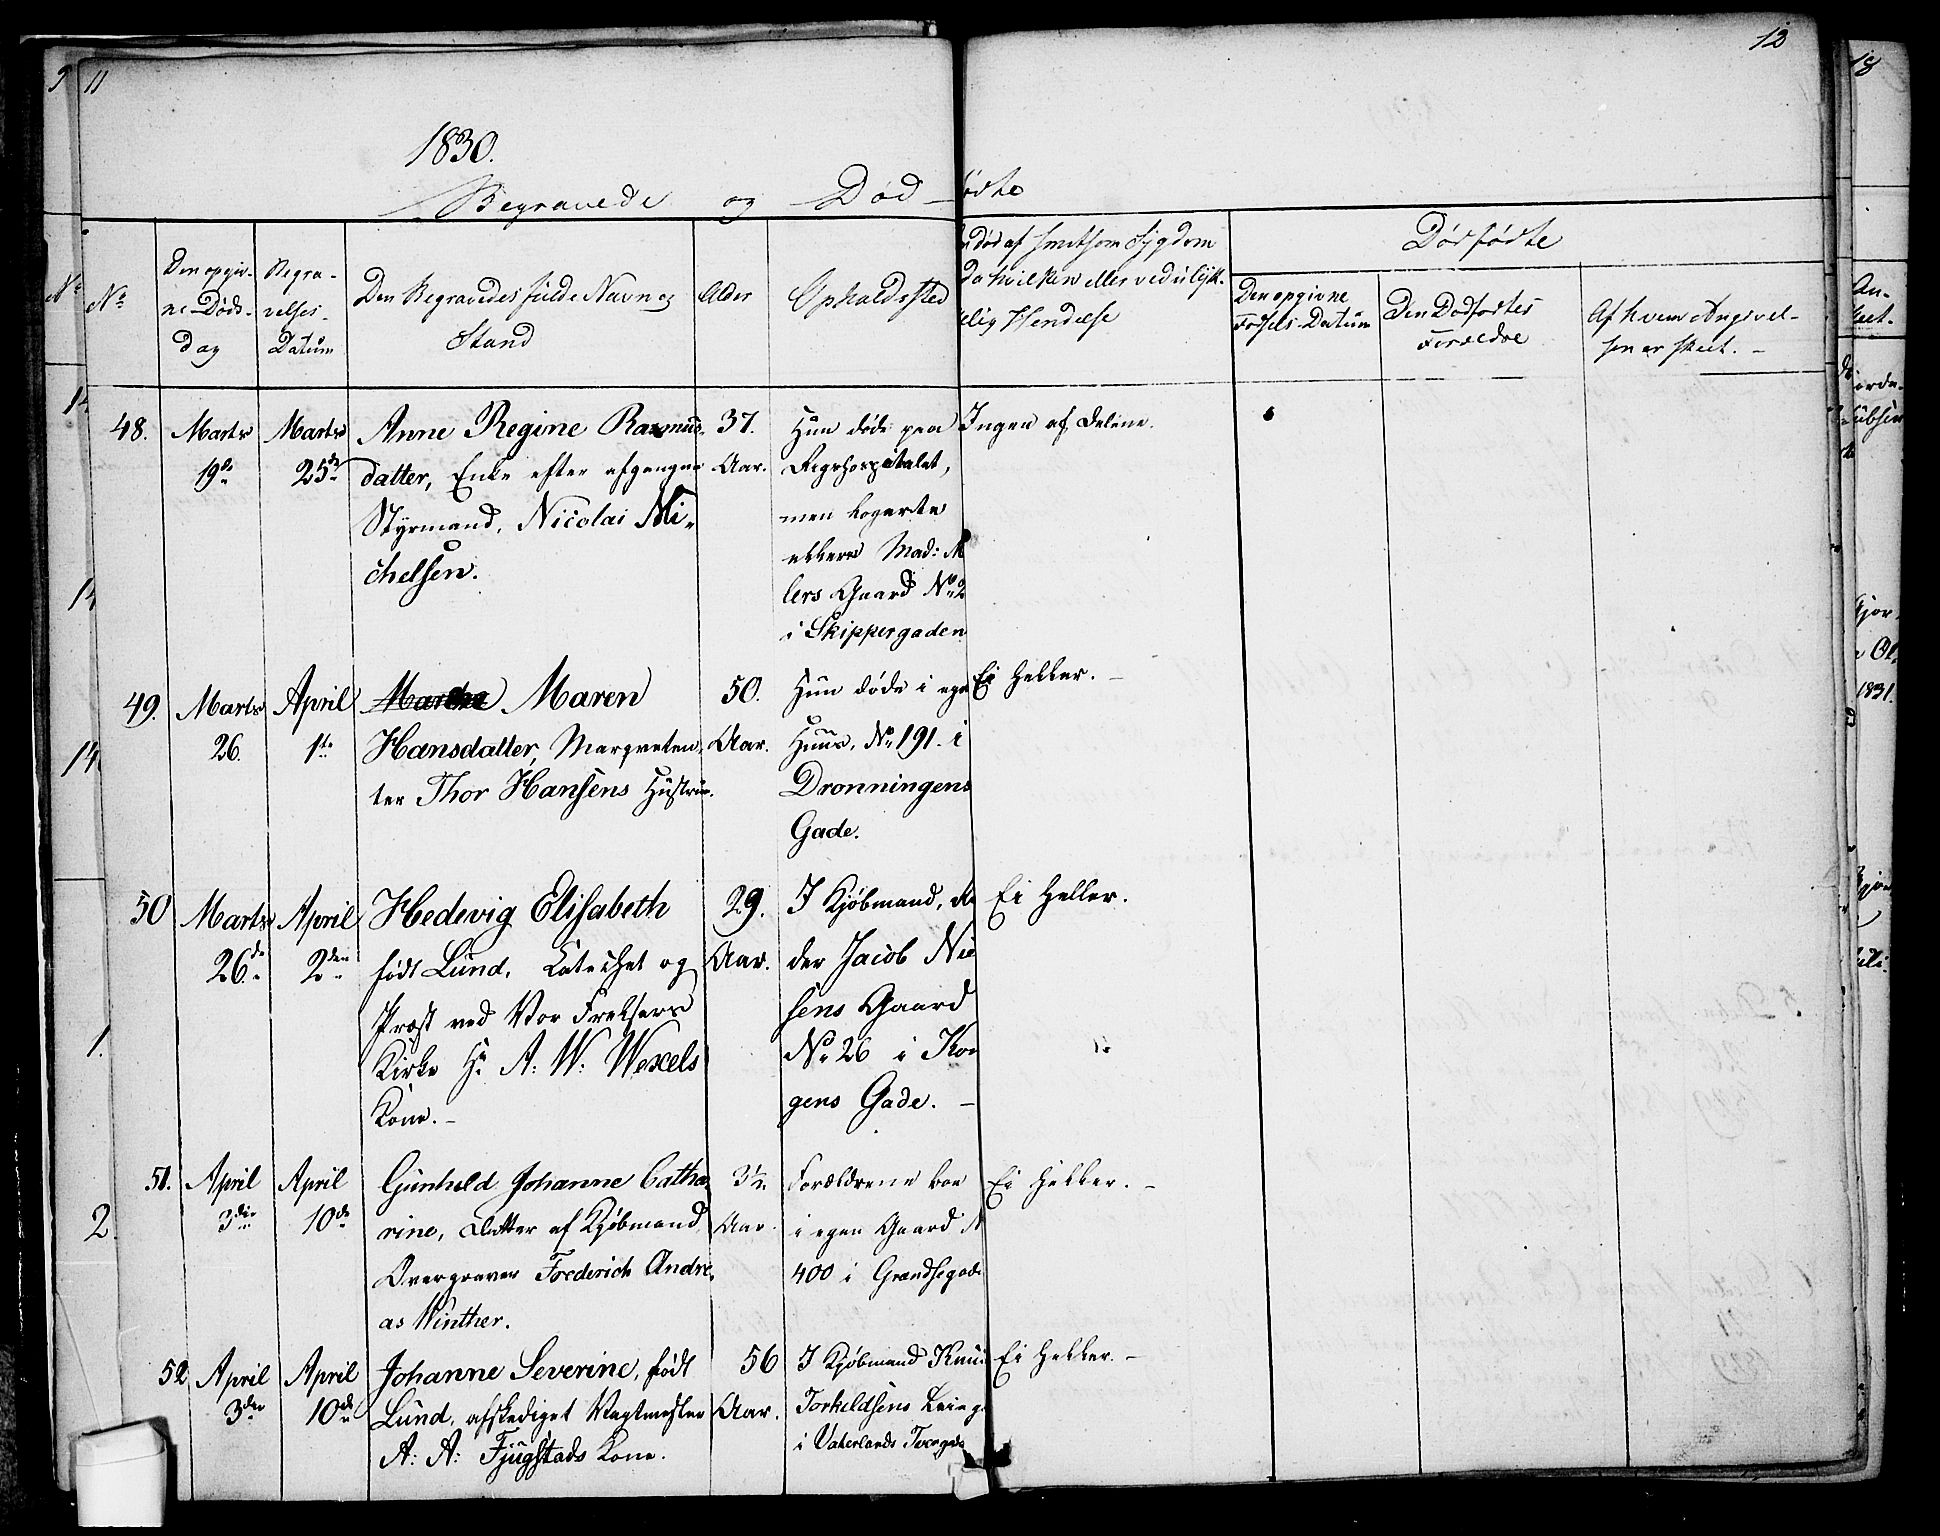 11
12
1830.
Begravede og Død-
ødte
No
Den opgiv-
ne Døds-
dag
Begra-
velses-
Datum
Den Begravedes fulde Navn og
Stand
Alder
Opholdssted
Død af smitsom Sygdom
da hvilken eller ved ulyk-
kelig Hendelse
Dødfødte
Den opgivne
Fødsels-Datum
Den Dødfødtes
Forældre
Af hvem Angivel-
sen er skeet. -
48.
Marts
19de
Marts
25de
Anne Regine Rasmus-
datter, Enke efter afgangne
Styrmand, Nicolai Mi-
chelsen.
37.
Aar.
Hun døde paa
Rigshospitalet,
men logerte
ellers Mad:
lers Gaard No 2
i Skippergaden
Ingen af Delene.
49.
Marts
26.
April
1te
Maren
Hansdatter, Margveten-
ter Thor Hansens Hustrue.
50.
Aar.
Hun døde i egn
Huus, No 191. i
Dronningens
Gade.
Ei Heller. -
50
Marts
26de
April
2den
Hedevig Elisabeth
født Lund, Catechet og
Præst ved Vor Frelsers
Kirke Hr A: W: Wexels
Kone. -
29.
Aar.
I Kjøbmand,
der Jacob Nie
sens Gaard
No 26 i Kon
gens Gade. -
Ei Heller.
51.
April
3die
April
10de
Gunhild Johanne Catha-
rine, Datter af Kjøbmand
Overgraver Frederich Andre-
as Winther.
3½
Aar
Forældrene boe
i egen Gaard N
400 i Grændsegade
Ei Heller. -
52
April
3die
April
10de
Johanne Severine, født
Lund, afskediget Vagtmester
A: A: Fjugstads Kone.
56
Aar.
I Kjøbmand Knud
Torkildsens Leieg.
i Vaterlands Tvergade
Ei Heller. -